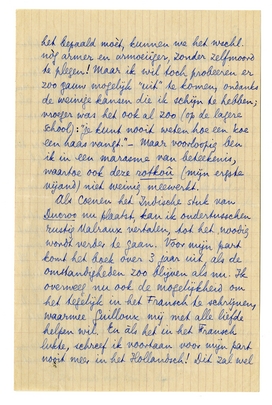 het bepaald mòet, kunnen we het wschl.
nòg armer en urmoeiïger, zonder zelfmoord
te plegen! Maar ik wil toch probeeren er
zoo gauw mogelijk "uit" te komen, ondanks
de weinige kansen die ik schijn te hebben;
vroeger was het ook al zoo (op de lagere
school): "je kunt nooit weten hoe een koe
een haas vangt." — Maar voorloopig ben
ik in een marasme van beteekenis,
waartoe ook deze rotkou (mijn ergste
vijand) niet weinig meewerkt.
Als Coenen het Indische stuk van
nu plaatst, kan ik ondertusschen
rustig Malraux vertalen, tot het noodig
wordt verder te gaan. Voor mijn part
komt het boek over 3 jaar uit, als de
omstandigheden zoo blijven als nu. Ik
overweeg nu ook de mogelijkheid om
het tegelijk in het Fransch te schrijven,
waarmee Guilloux mij met alle liefde
helpen wil. En àls het in het Fransch
lukte, schreef ik voortaan voor mijn part
nooit meer in het Hollandsch! Dit zal wel